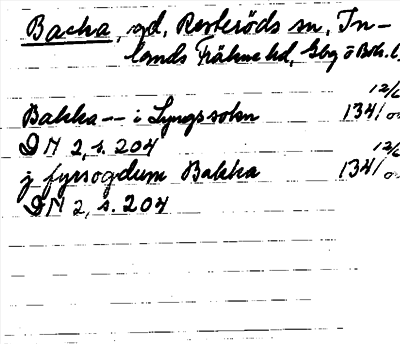 Backa, gd, Resteröds sn, In-
lands Fräkne hd, Gbg o Boh. l
Bakka -- i Lyngs sokn 12/6 1341
DN 2, s. 204
j fyrsogdum Bakka 12/6 1341
DN 2, s. 204